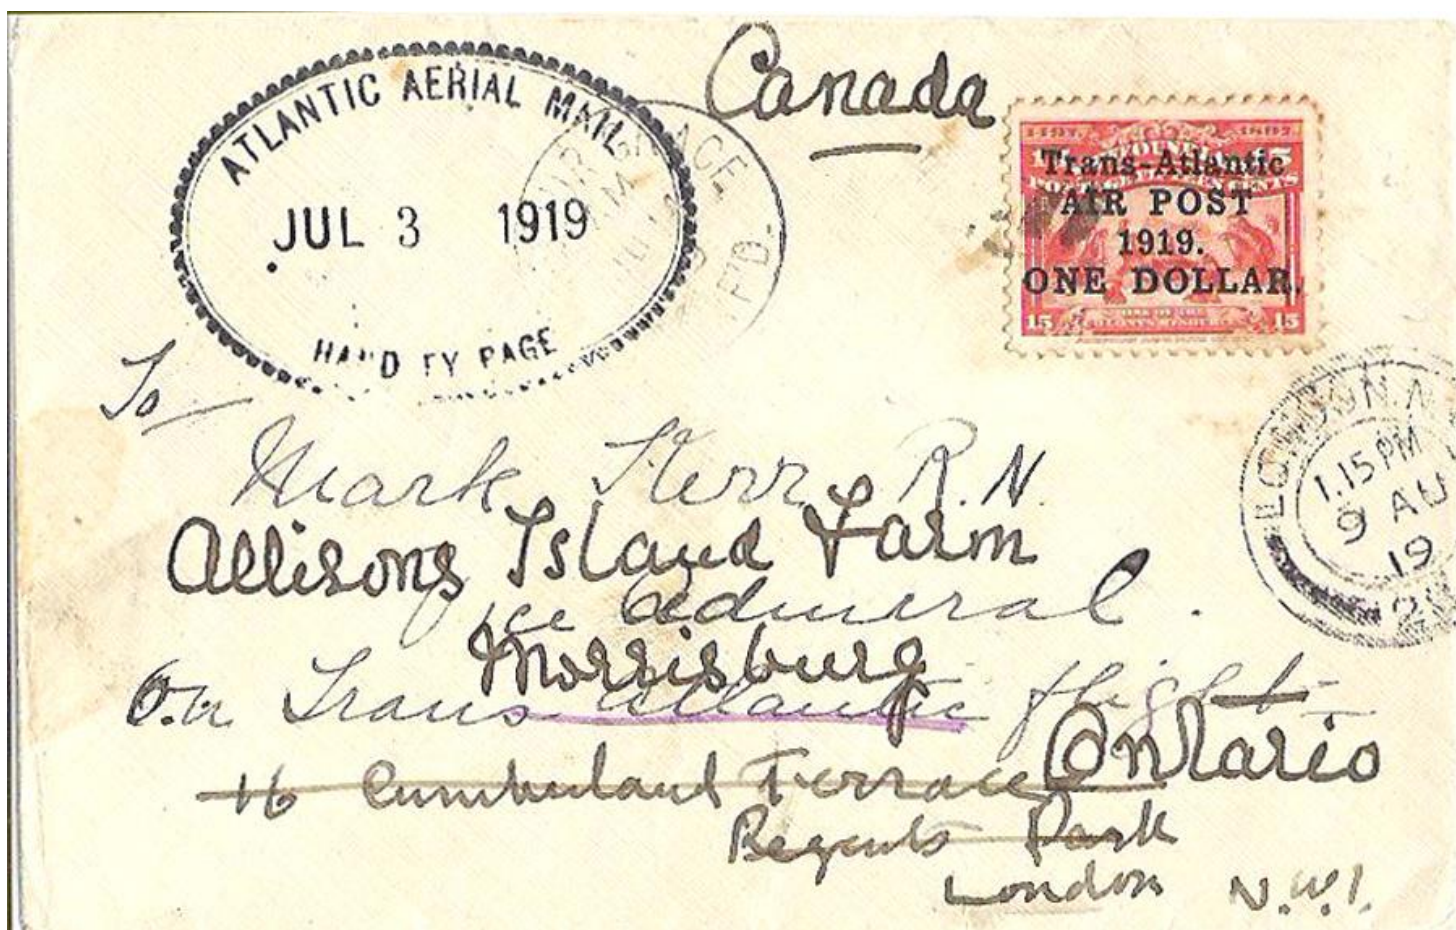 Canada
ATLANTIC AERIAL MAIL
JUL 3 1919
HAND TY PAGE
Trans-Atlantic
AIR POST
1919.
ONE DOLLAR.
15 15
LONDON. N
1.15 PM
9 AU
19
To
Mark Kerr R.N.
Allisons Island Farm
Admiral.
Morrisburg
On Trans Atlantic flight
Ontario
16 Cumberland Terrace
Regents Park
London N.W.1.